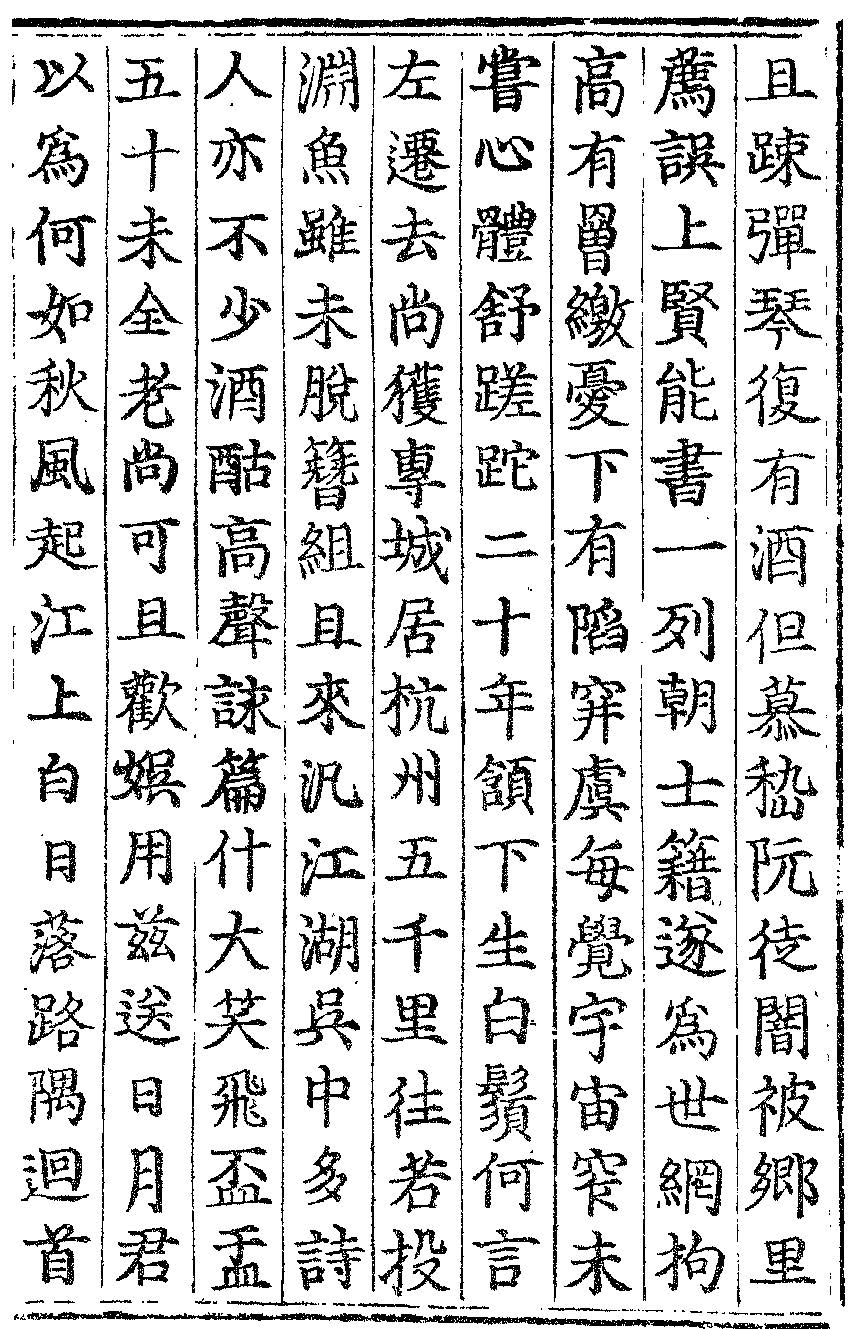 且踈彈琴復有酒但慕嵇阮徒闇被鄉里
薦誤上賢能書一列朝士籍遂爲世網拘
高有罾繳憂下有陷穽虞每覺宇宙窄未
嘗心體舒蹉跎二十年頷下生白鬚何言
左遷去尚獲專城居杭州五千里往若投
淵魚雖未脫簪組且來汎江湖吳中多詩
人亦不少酒酤高聲詠篇什大笑飛盃盂
五十未全老尚可且歡娛用茲送日月君
以爲何如秋風起江上白日落路隅迴首